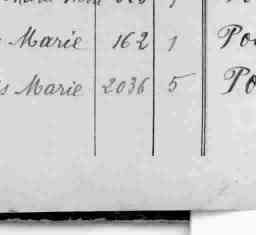 Marie 162 1 Po
s Marie 2036 5 Po